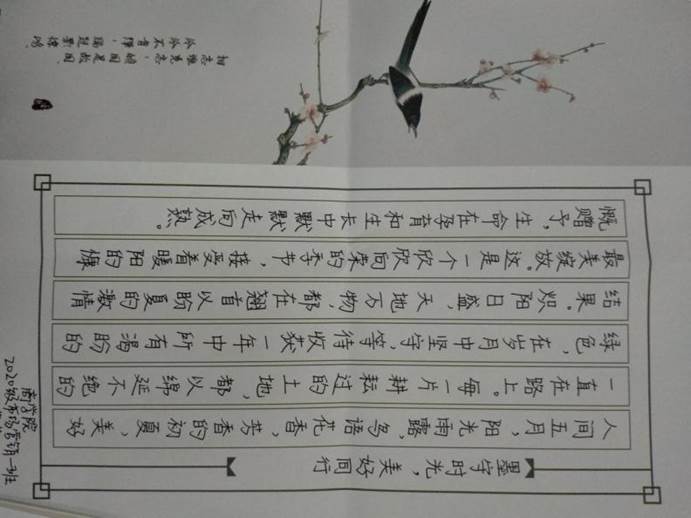 墨守时光，美好同行
人间五月，阳光雨露，鸟语花香，芳香的初夏，美好
一直在路上。每一片耕耘过的土地，都以绵延不绝的
绿色，在岁月中坚守，等待收获一年中所有渴盼的
结果。炽阳日盛，天地万物，都在翘首以盼夏的激情
最美绽放。这是一个欣欣向荣的季节，接受着暖阳的慷
慨赠予，生命在孕育和生长中默默走向成熟。
商学院
2020级市场营销一班